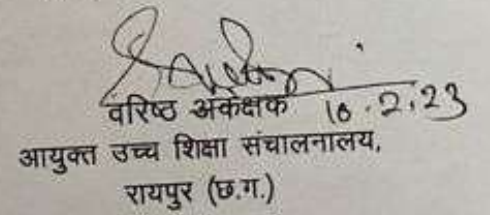 वरिष्ठ अकेंक्षक 16.2.23
आयुक्त उच्च शिक्षा संचालनालय,
रायपुर (छ.ग.)